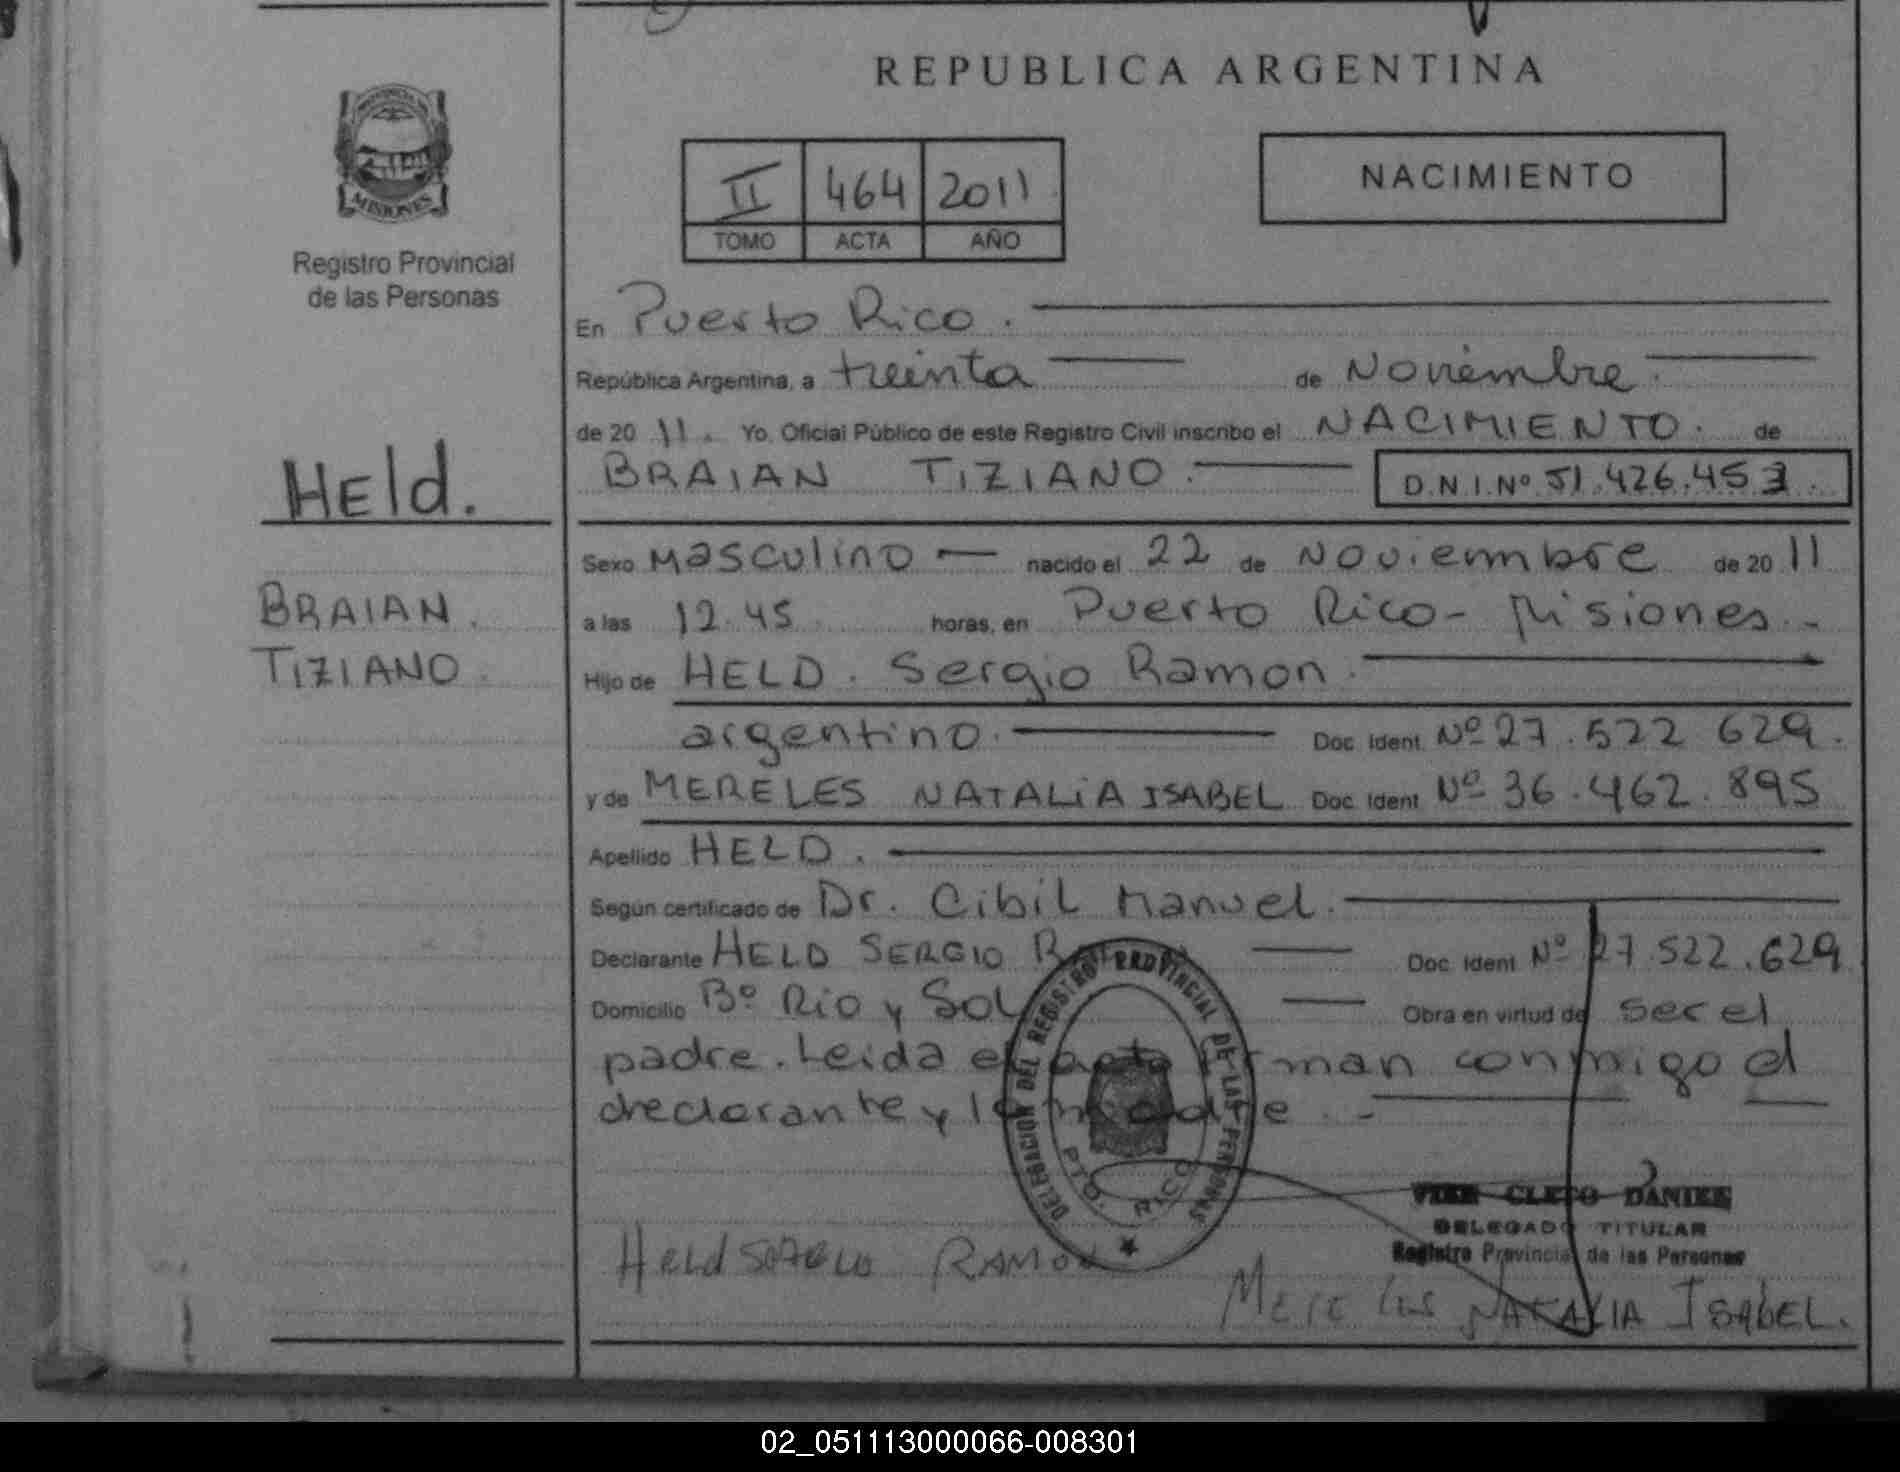 REPUBLICA ARGENTINA
MISIONES
Registro Provincial
de las Personas
II 464 2011
TOMO ACTA AÑO
NACIMIENTO
En Puerto Rico.
República Argentina, a treinta de Noviembre.
de 20 11. Yo, Oficial Público de este Registro Civil inscribo el NACIMIENTO. de
BRAIAN TIZIANO. D.N.I.Nº 51.426.453.
Held.
BRAIAN.
TIZIANO.
Sexo Masculino nacido el 22 de Noviembre de 20 11
a las 12.45 horas, en Puerto Rico - Misiones.-
Hijo de HELD. Sergio Ramon.
argentino. Doc. Ident. Nº 27.522 629.
y de MERELES NATALIA ISABEL Doc. Ident. Nº 36.462.895
Apellido HELD.
Según certificado de Dr. Cibil Manuel.
Declarante HELD SERGIO Doc. Ident. Nº 27.522.629
Domicilio Bº Rio y Sol Obra en virtud de ser el
padre. Leida el acta firman conmigo el
declarante y la madre.-
DELEGACION DEL REGISTRO PROVINCIAL DE LAS PERSONAS
PTO. RICO
CLETO DANIEL
DELEGADO TITULAR
Registro Provincial de las Personas
Held RAMON
NATALIA ISABEL.
02_051113000066-008301